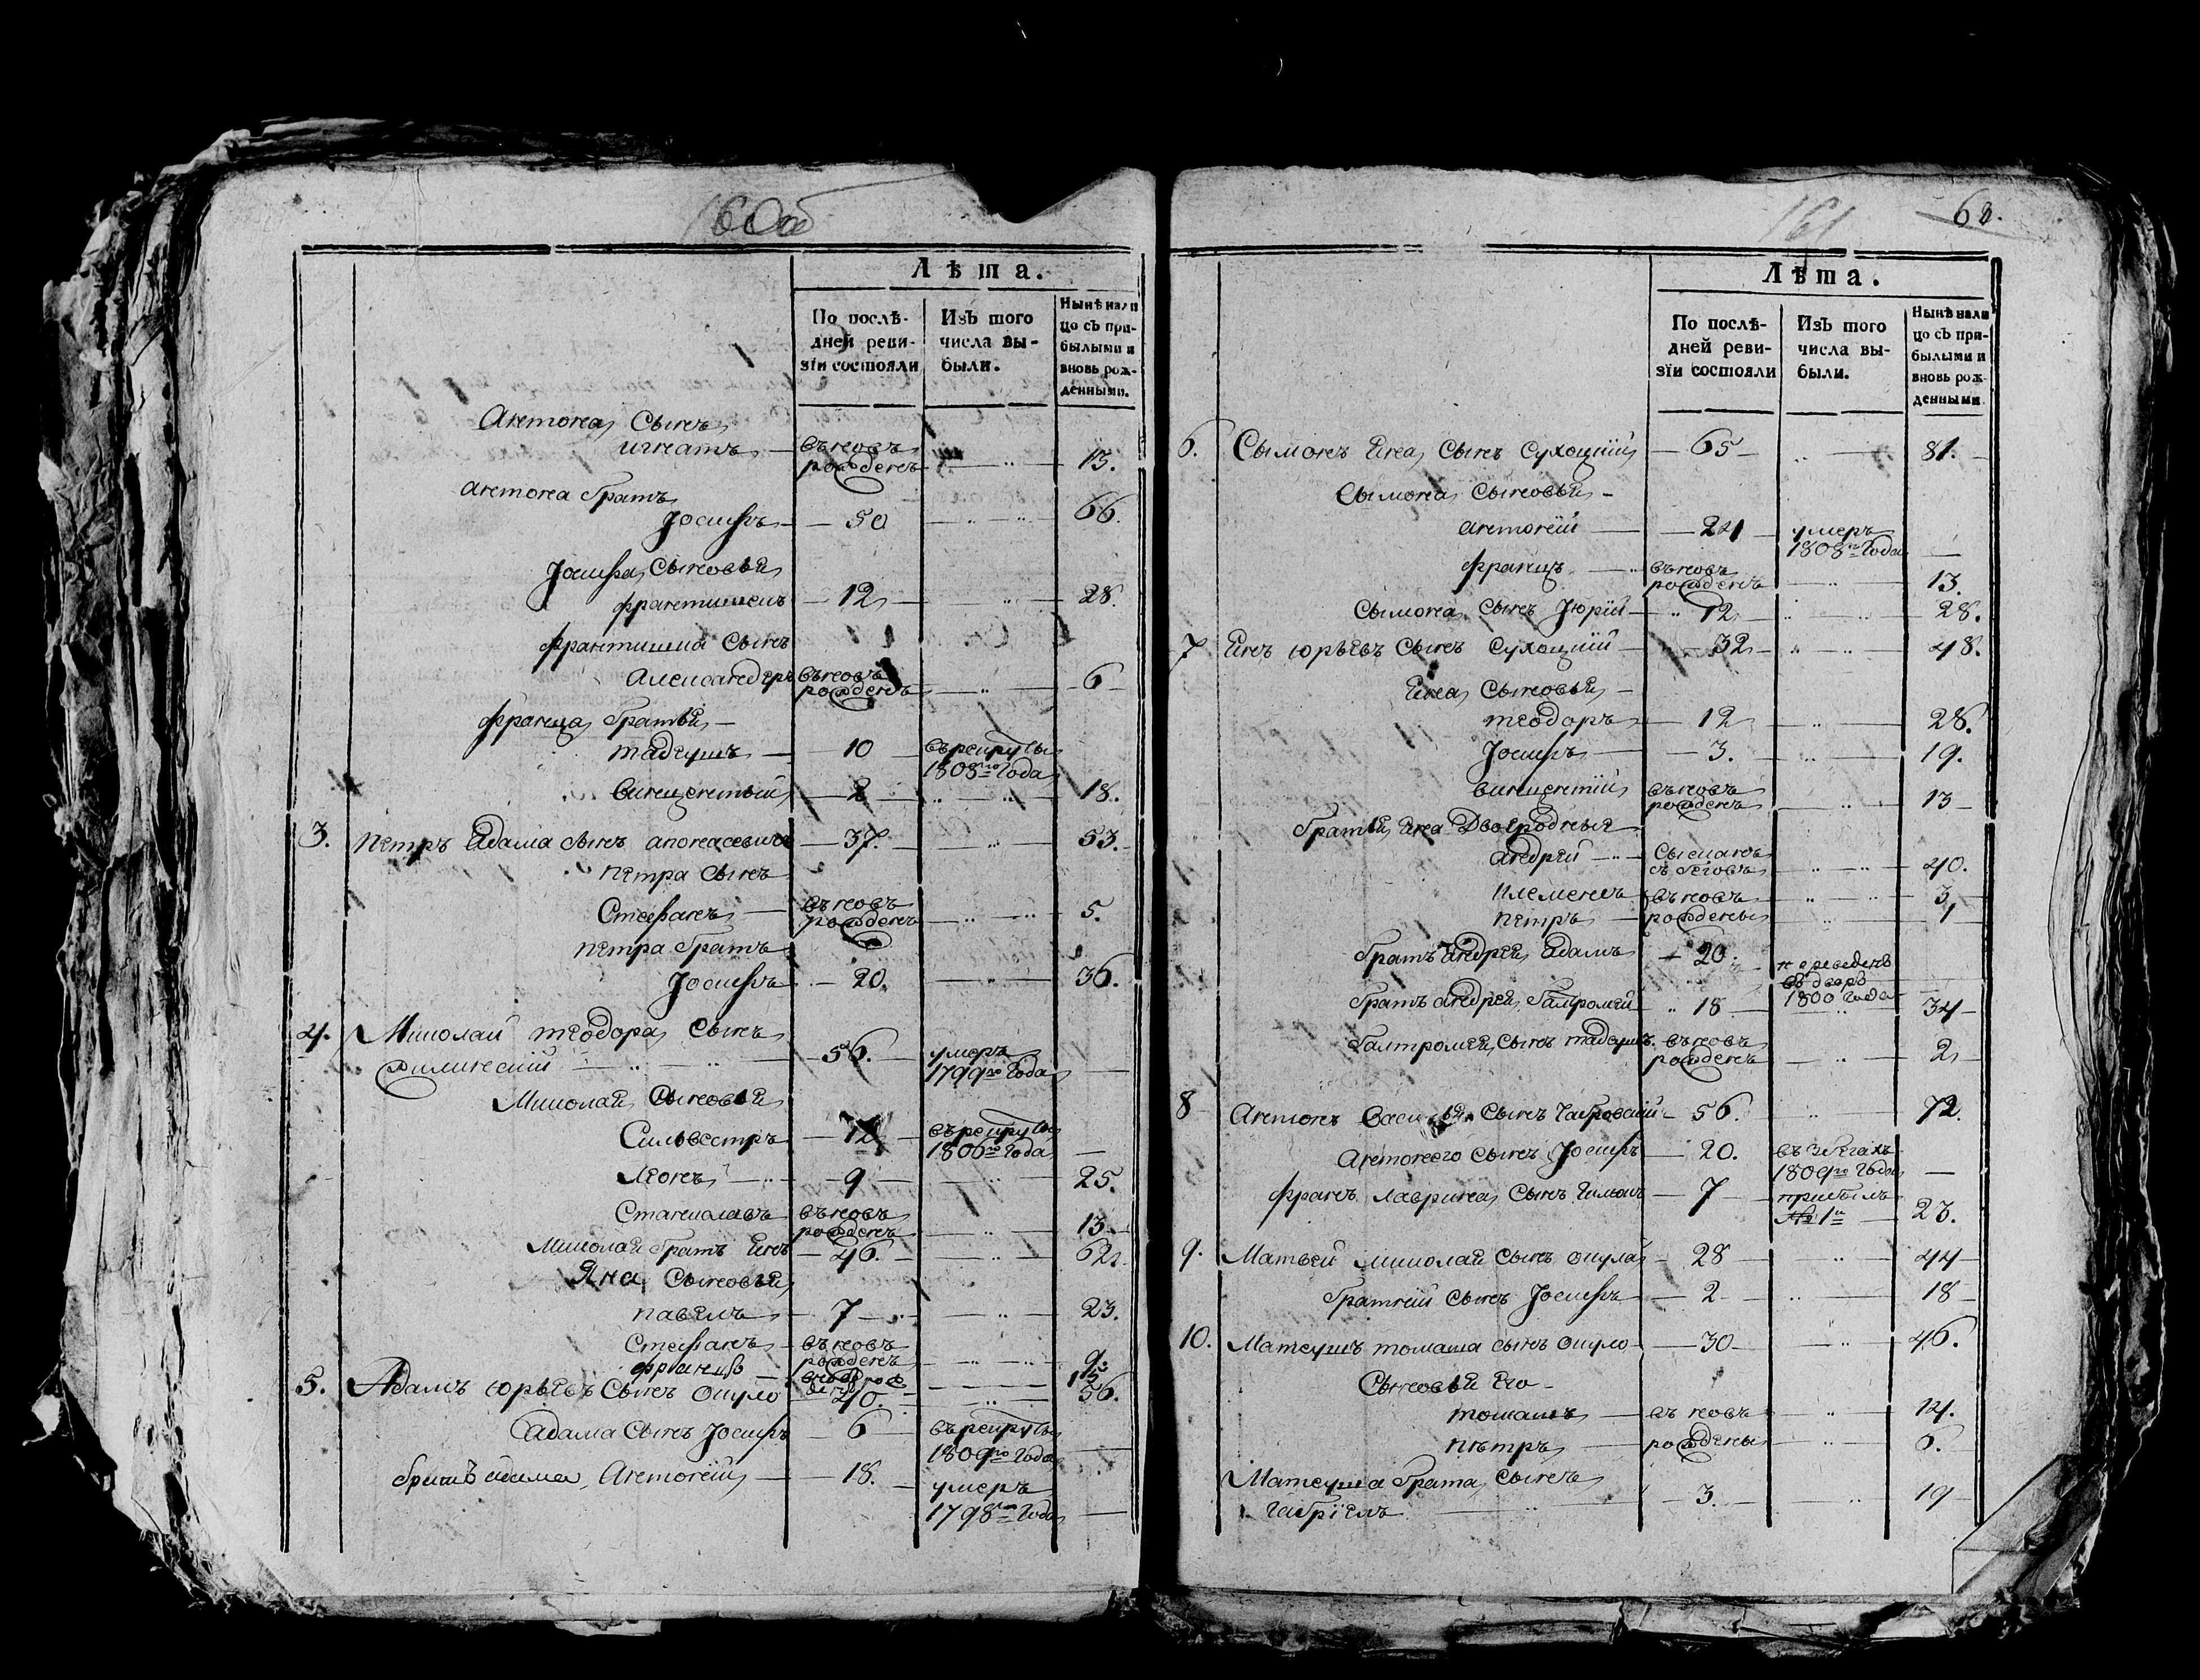 160об
Лѣта.
По послѣ-
дней реви-
зїи состояли
Изъ того
числа вы-
были.
Нынѣ нали
цо съ при-
былыми и
вновь рож-
денными.
Антона Сынъ
игнатъ — въновь
рожденъ — 13.
антона братъ
Іосифъ — 50 — 66.
Іосифа Сыновья
франтишекъ — 12 — 28.
франтишка Сынъ
Александеръ въновь
рожденъ — 6
франца братья —
тадеушъ — 10 въ рекруты
1808го Года
винцентый — 2 — 18.
3. Петръ Адама сынъ — 37. — 53.
Петра Сынъ
Стефанъ — въновь
рожденъ — 5.
Петра братъ
Іосифъ — 20. — 36.
4. Миколай теодора Сынъ
— 56. умеръ
1799го Года —
Миколая Сыновья
Сильвестръ — 12 — въ рекруты
1806го Года —
Леонъ — 9 — 25.
Станиславъ въновь
рожденъ — 13.
Миколая братъ Янъ — 46. — 62.
Яна Сыновья
павелъ — 7 — 23.
Стефанъ — въновь
рожденъ — 9.
францъ — 15
5. Адамъ юрьевъ Сынъ Окуло — 40. — 56.
Адама Сынъ Іосифъ — 6 — въ рекруты
1809го Года —
братъ адама Антоній — 18. — умеръ
1798го Года —
161
Лѣта.
По послѣ-
дней реви-
зїи состояли
Изъ того
числа вы-
были.
Нынѣ нали
цо съ при-
былыми и
вновь рож-
денными
6. Сымонъ Яна Сынъ Сухоцкій — 65 — 81.
Сымона Сыновья —
антоній — 24 умеръ
1808го Года —
францъ — въновь
рожденъ — 13.
Сымона Сынъ Юрій — 12 — 28.
7 Янъ юрьевъ Сынъ Сухоцкій — 32 — 48.
Яна Сыновья —
теодоръ — 12 — 28.
Іосифъ — 3. — 19.
винцентій въновь
рожденъ — 13
братья Яна Двоеродные
андрей — Сысканъ
съ беговъ — 40.
въновь — 3
петръ — рождены — 1
братъ Андрея Адамъ — 20. переведенъ
въ дворъ
1800 Года
братъ андрея балтромей — 18 — 34
балтромея Сынъ тадеушъ въновь
рожденъ — 2
8 Антонъ Василья Сынъ — 56. — 72.
Антонего Сынъ Іосифъ — 20. въ бегахъ
1809го Года —
франъ лаврина Сынъ — 7 —
№ 1й — 23.
9. Матвей миколая Сынъ окула — 28 — 44
братній Сынъ Іосифъ — 2 — 18
10. Матеушъ томаша сынъ Окуло — 30 — 46.
Сыновья Его —
томашъ — въ новь — 14.
пѣтръ — рождены — 6.
Матеуша брата Сынъ
габріелъ — 3. — 19